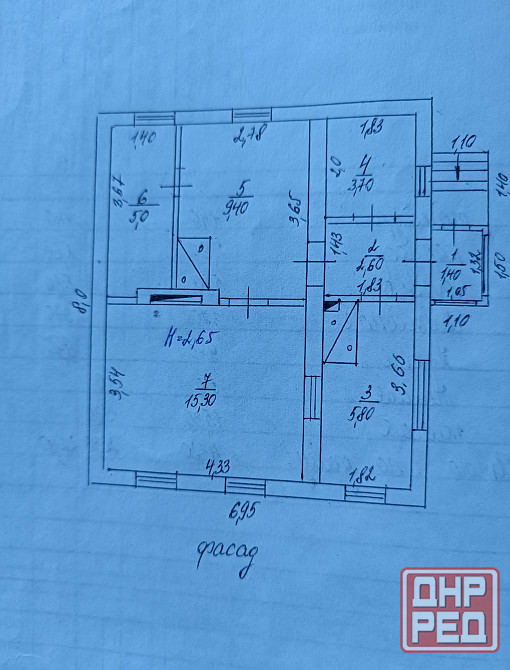 1,40
2,78
1,83
1,10
3,67
6
5,0
5
9,40
3,65
2,0
4
3,70
1,40
1,43
2
2,60
1,83
1
1,40
1,32
1,50
1,05
1,10
8,0
H=2,65
3,54
7
15,30
3
5,80
3,66
4,33
1,82
6,95
фасад
ДНР
РЕД